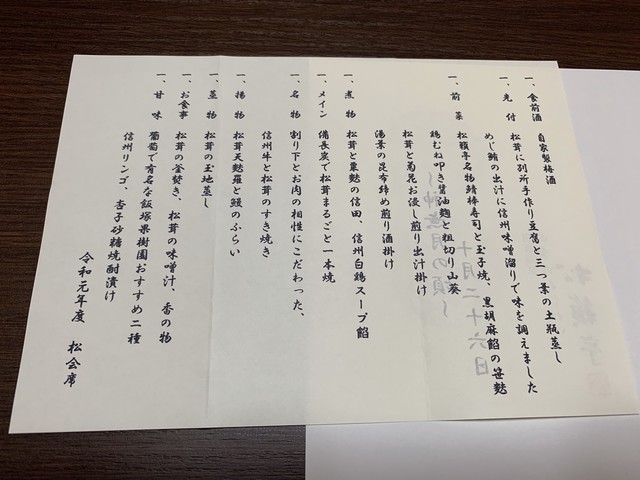 一、食前酒　自家製梅酒
一、先　付　松茸に別所手作り豆腐と三つ葉の土瓶蒸し
めじ鮪の出汁に信州味噌溜りで味を調えました
一、前　菜　松籟亭名物鯖棒寿司と玉子焼、黒胡麻餡の笹麩
鶏むね叩き醤油麹と粗切り山葵
松茸と菊花お浸し煎り出汁掛け
湯葉の昆布締め煎り酒掛け
一、煮　物　松茸と粟麩の信田、信州白鶏スープ餡
一、メイン　備長炭で松茸まるごと一本焼
一、名　物　割り下とお肉の相性にこだわった、
信州牛と松茸のすき焼き
一、揚　物　松茸天麩羅と鰻のふらい
一、蒸　物　松茸の玉地蒸し
一、お食事　松茸の釜焚き、松茸の味噌汁、香の物
一、甘　味　葡萄で有名な飯塚果樹園おすすめ二種
信州リンゴ、杏子砂糖焼酎漬け
令和元年度　松会席
十月二十六日
〜神無月の頃〜